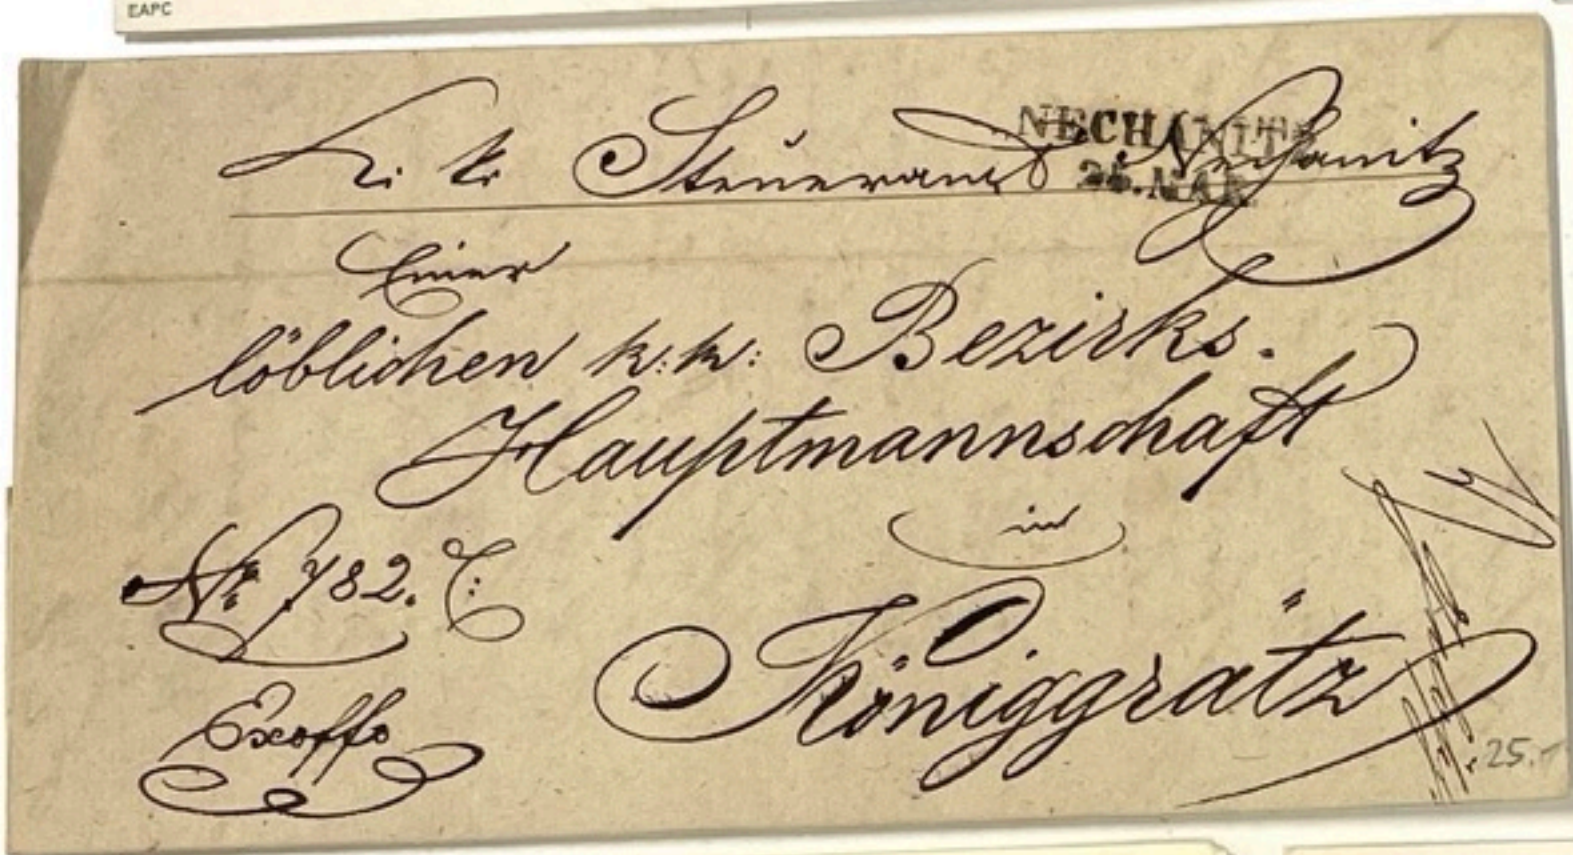 EAPC
K. k. Steueramt Nechanitz
NECHANITZ
25. MAR.
Einer
löblichen k: k: Bezirks-
Hauptmannschaft
in
Nr 782. C:
Königgrätz
Exoffo
25.-